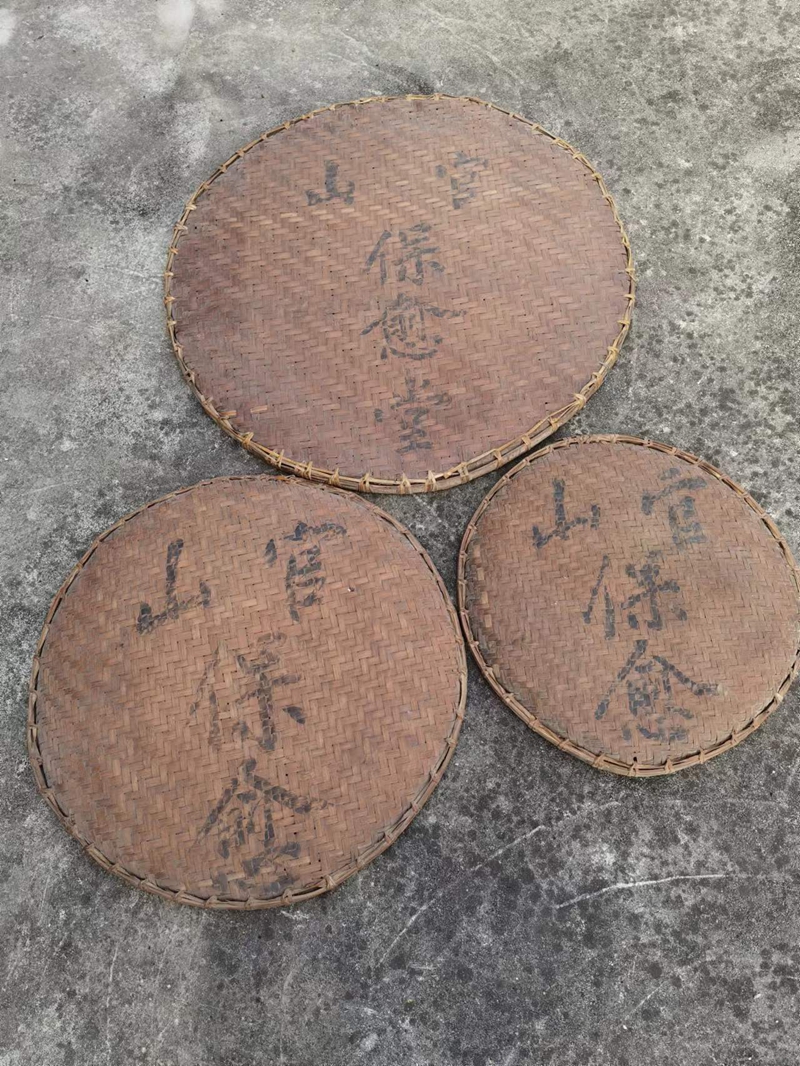 官山
保愈堂
官山
保愈
官山
保愈